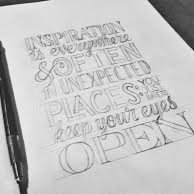 INSPIRATION
is everywhere
& OFTEN
IN UNEXPECTED
PLACES: YOU
keep your eyes
OPEN